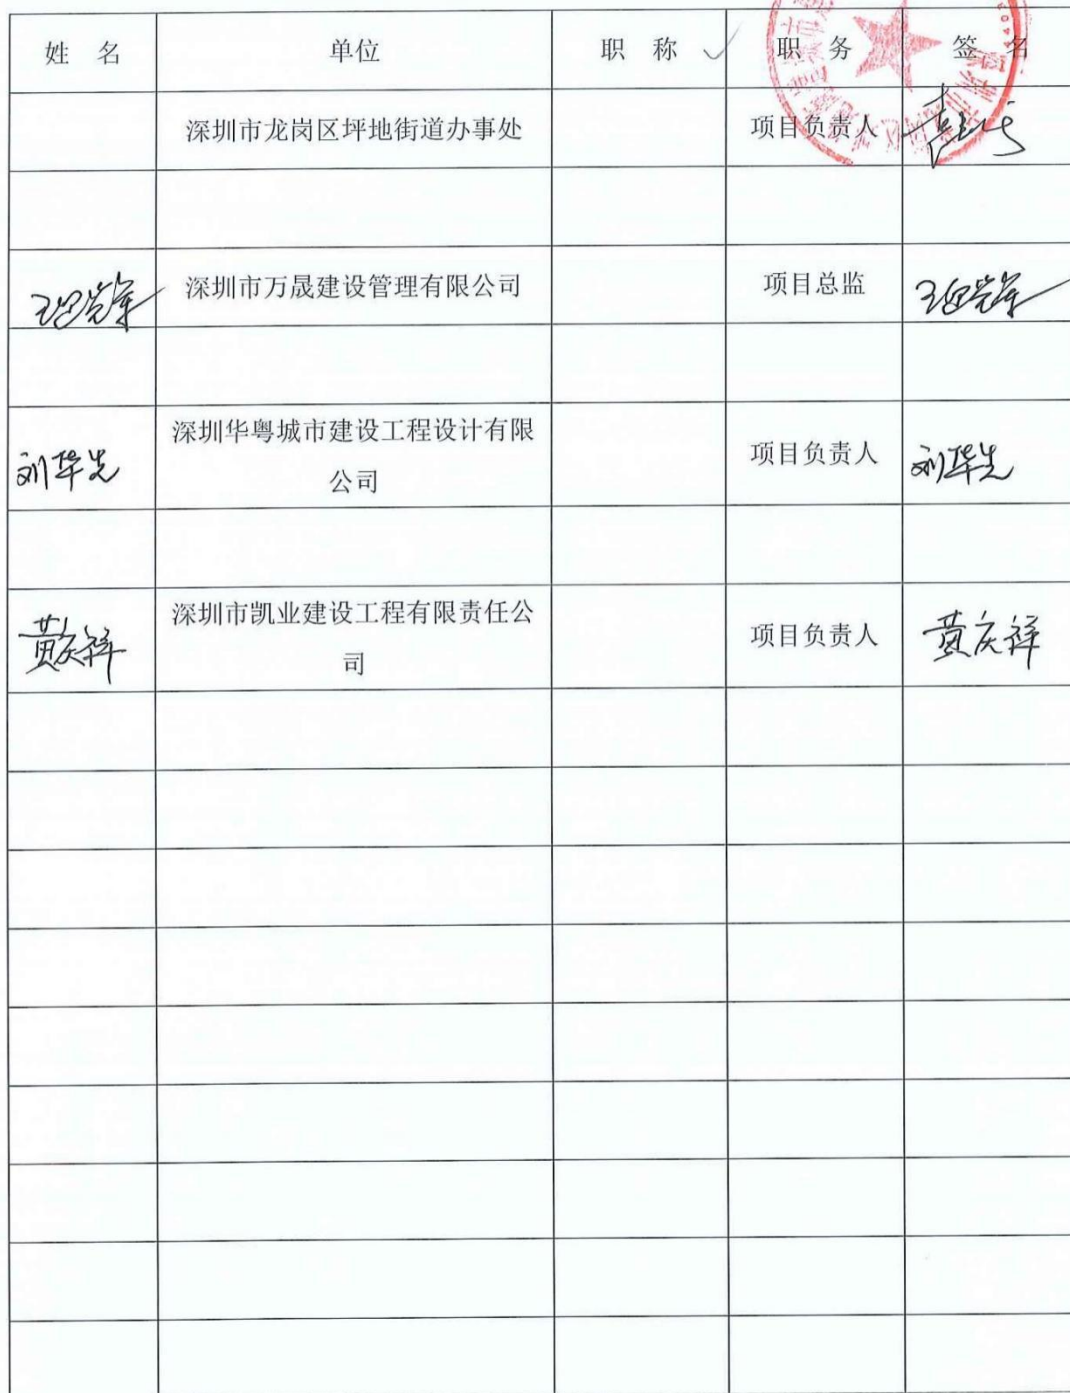 姓 名 单位 职 称 职 务 签 名
深圳市龙岗区坪地街道办事处 项目负责人
深圳市万晟建设管理有限公司 项目总监
刘华先 深圳华粤城市建设工程设计有限
公司 项目负责人 刘华先
黄庆祥 深圳市凯业建设工程有限责任公
司 项目负责人 黄庆祥